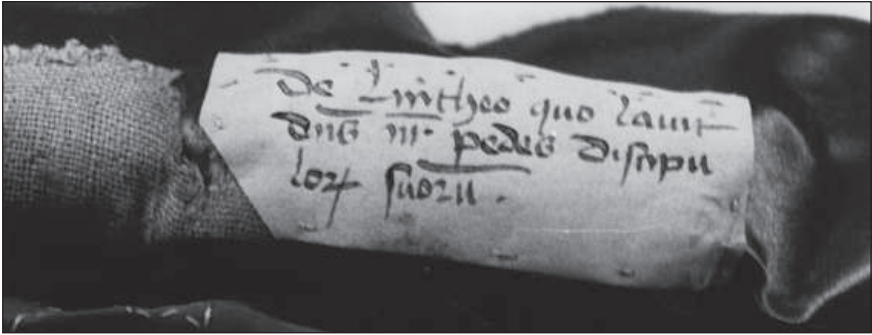 De Lintheo quo lauit
dn̄s nr̄ pedes discipu
loꝝ suoru .